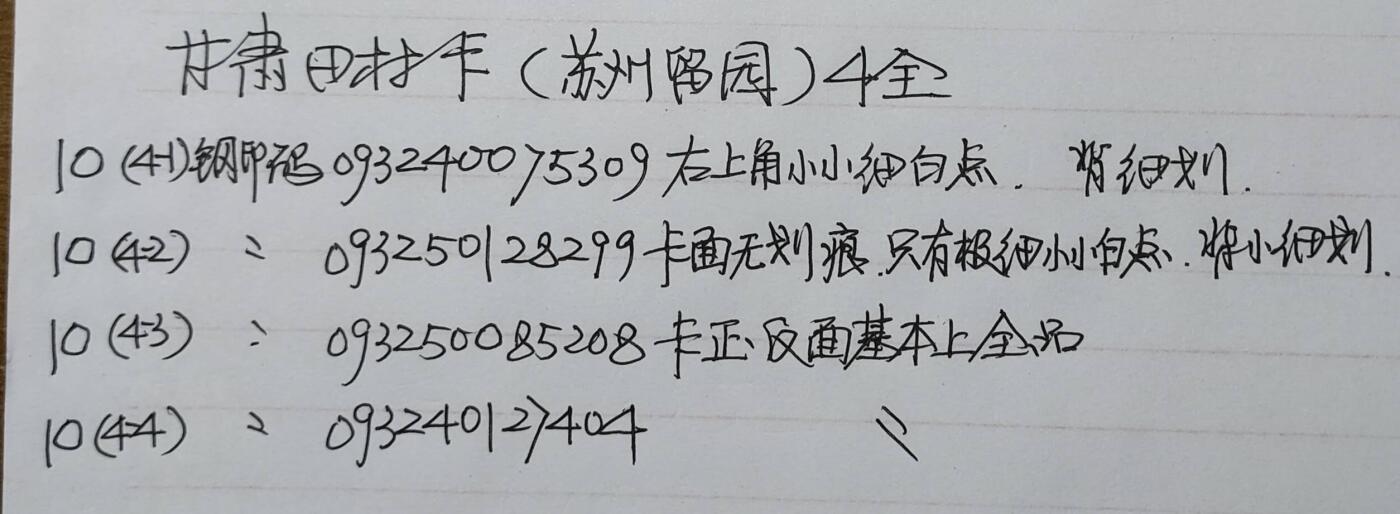 甘肃田村卡（苏州留园）4全
10（4-1）钢印码093240075309右上角小小细白点．背细划．
10（4-2） 〃 093250128299卡面无划痕．只有极细小小白点．背小细划．
10（4-3） 〃 093250085208卡正、反面基本上全品
10（4-4） 〃 093240127404 〃